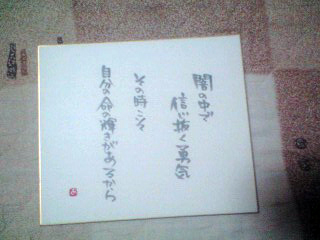 闇の中で
信じ抜く勇気
その時こそ
自分の命の輝きがあるから